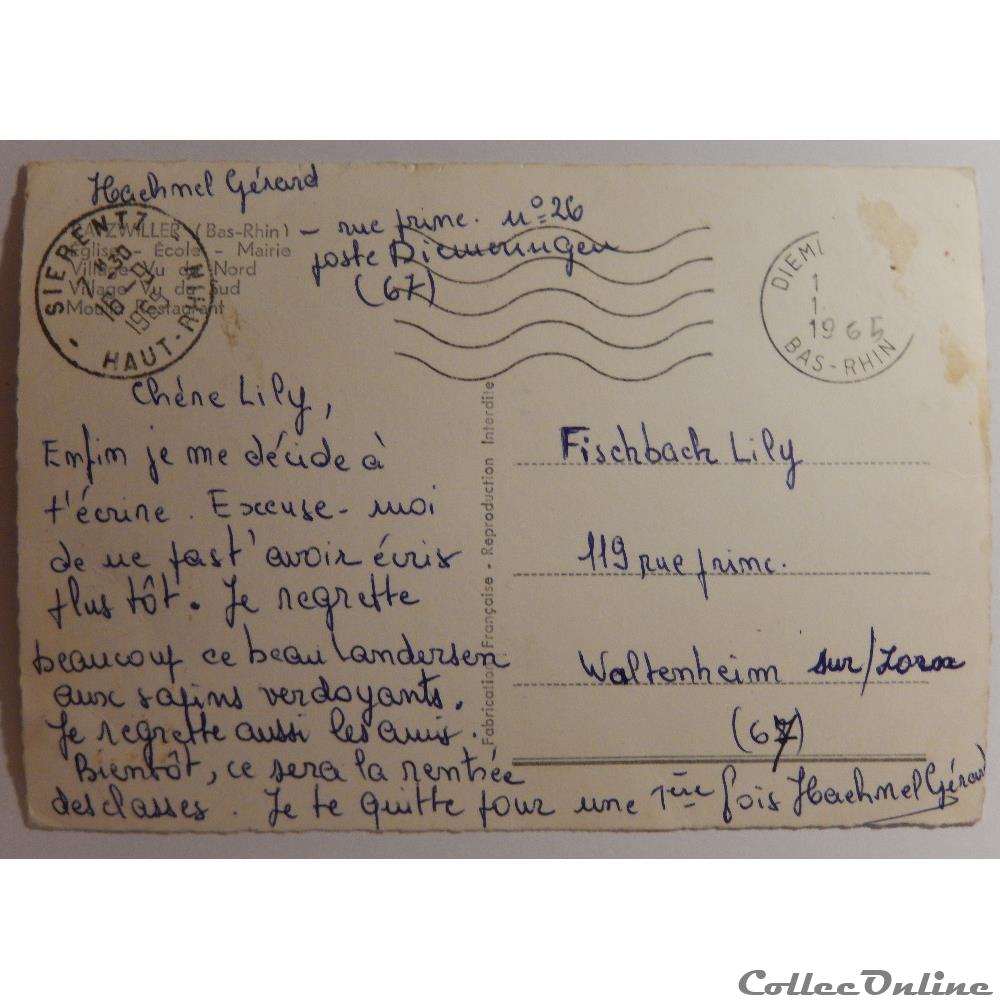 Haehnel Gérard
- rue princ. n°=26
poste Diemeringen
(67)
(Bas-Rhin)
Eglise - École - Mairie
Village Vu du Nord
Village Vu du Sud
Moulin Restaurant
SIERENTZ
HAUT-RHIN
DIEMI
1
1.
1965
BAS-RHIN
Chére Lily,
Enfin je me décide à
t'écrire. Excuse-moi
de ne past'avoir écris
plus tôt. Je regrette
beaucoup ce beau Landersen
aux sapins verdoyants.
Je regrette aussi les amis.
Bientôt, ce sera la rentrée
des classes. Je te quitte pour une 1ère fois Haehnel Gérard
Fabrication Française - Reproduction Interdite
Fischbach Lily
119 rue princ.
Waltenheim sur/Zorn
(67)
CollecOnline